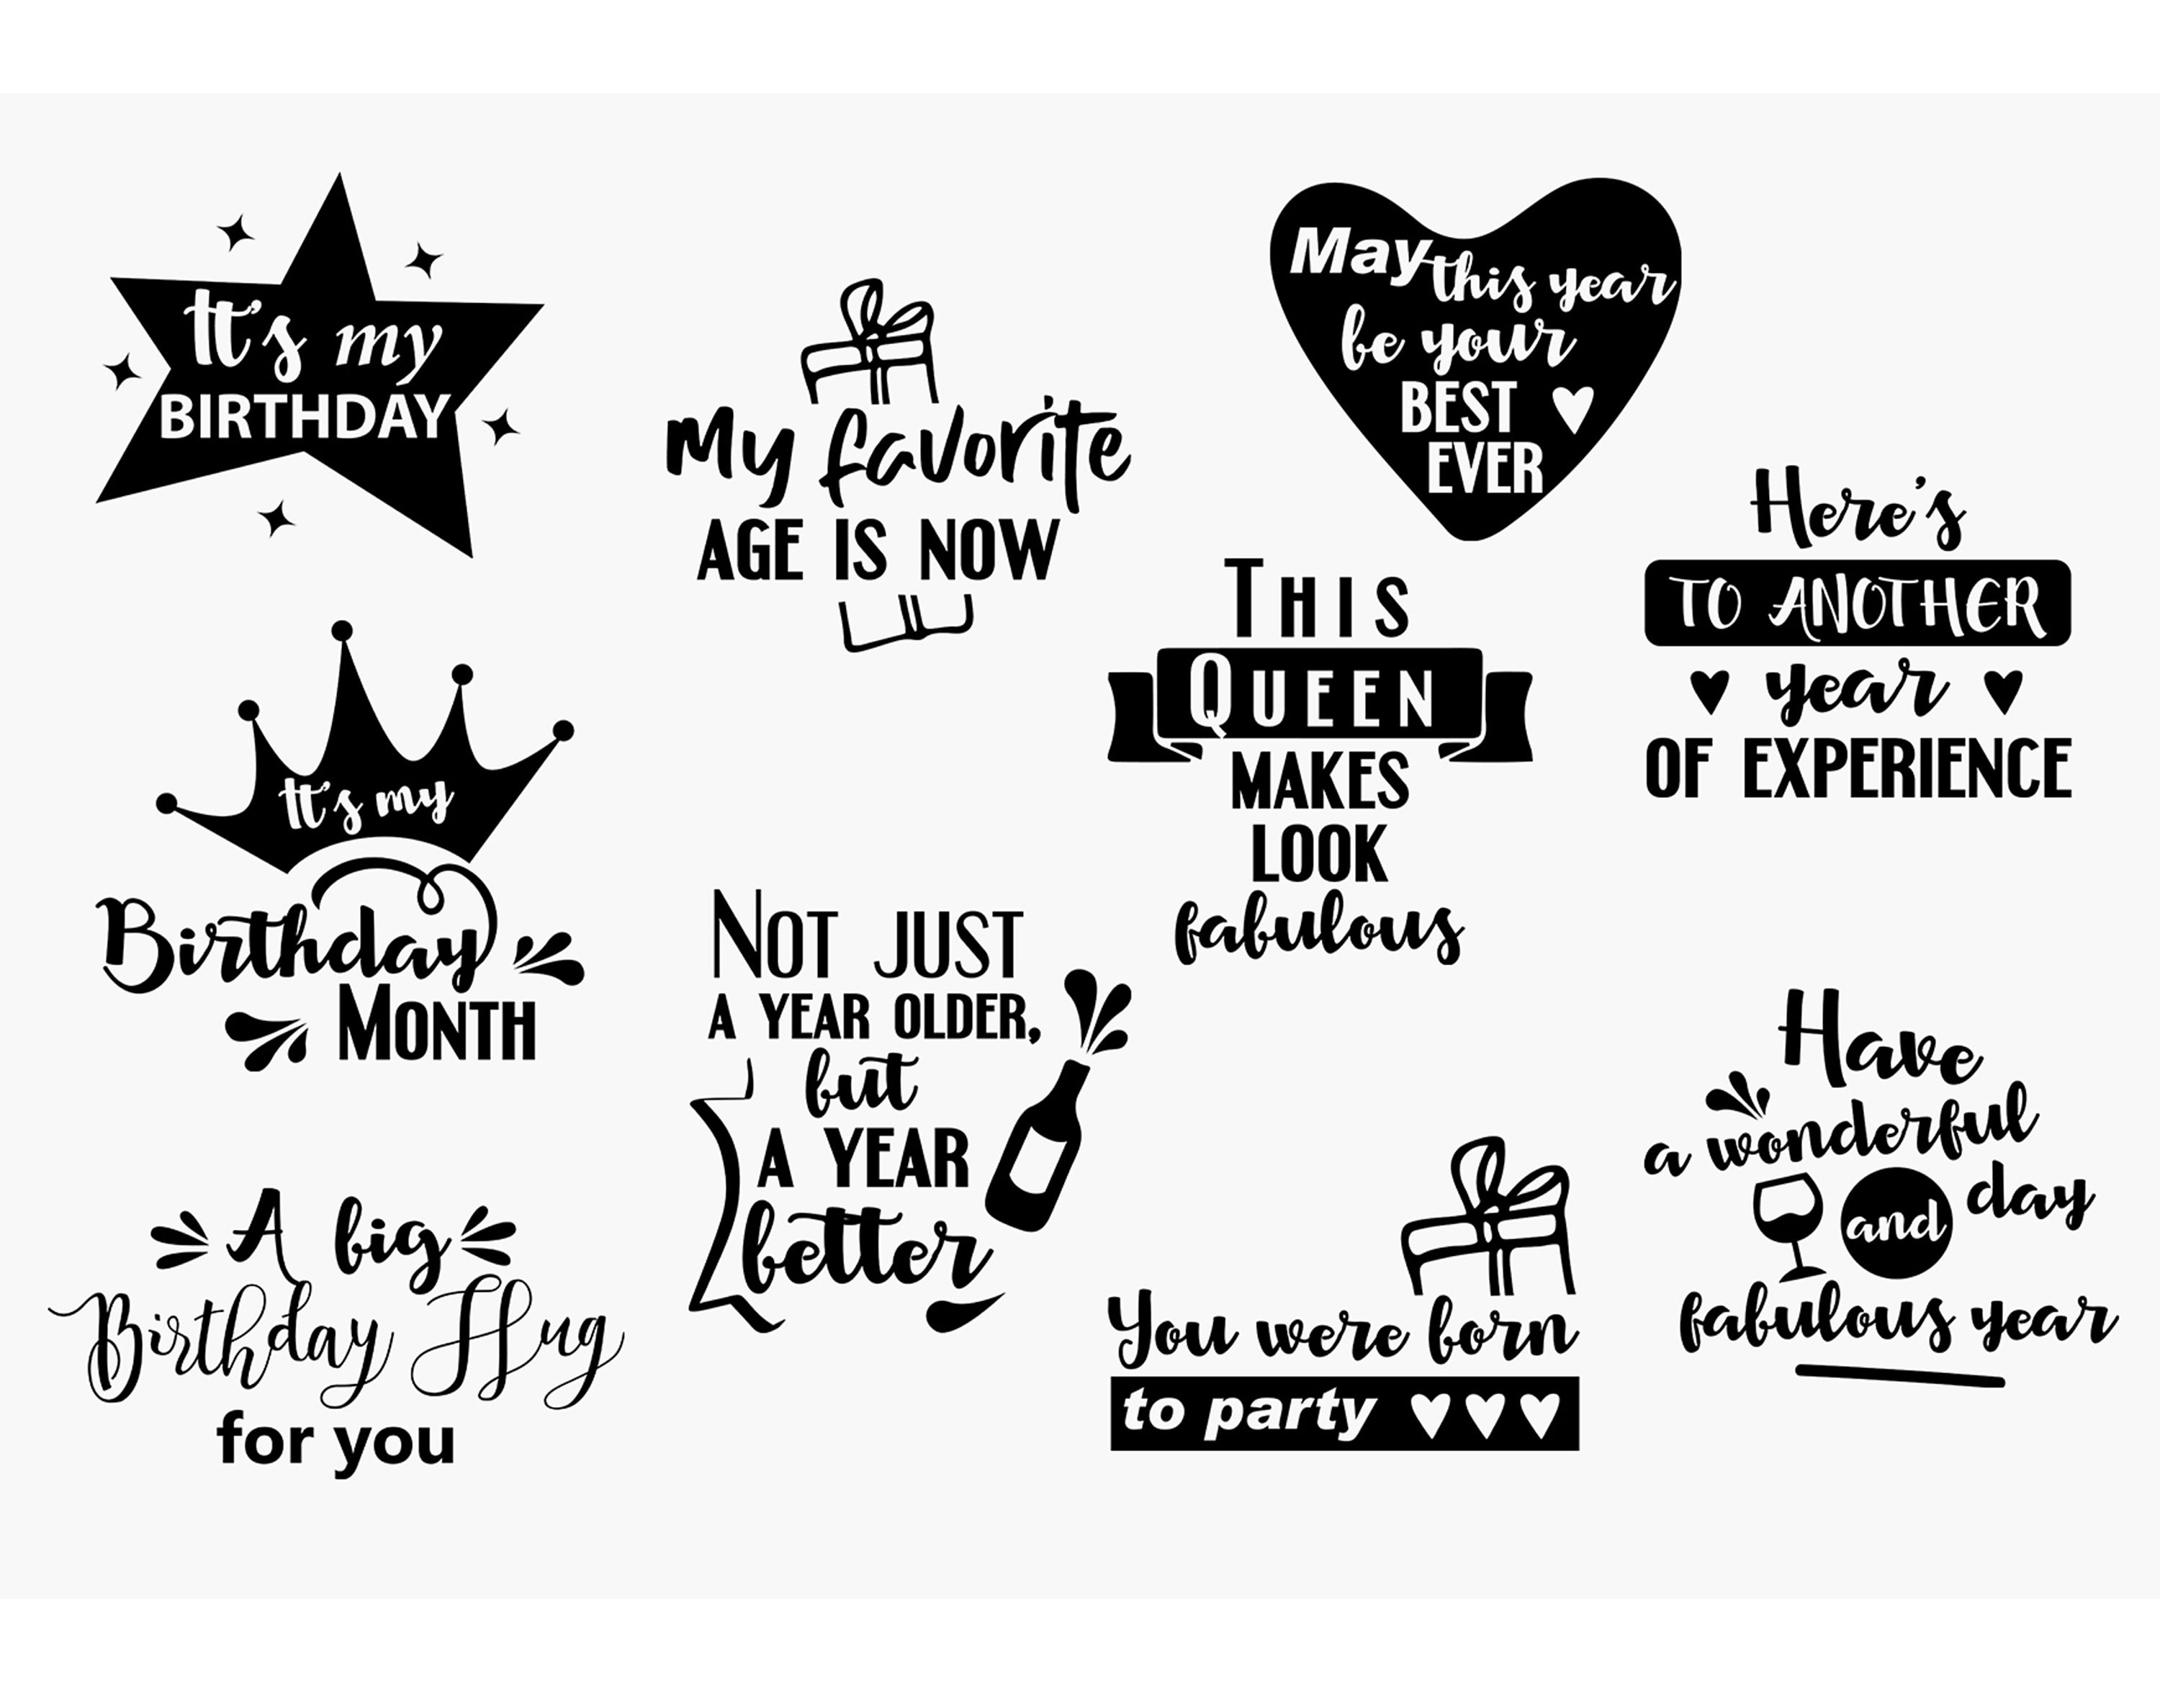 It's my
BIRTHDAY
My favorite
AGE IS NOW
May this year
be your
BEST
EVER
Here's
TO ANOTHER
year
OF EXPERIENCE
THIS
QUEEN
MAKES
LOOK
fabulous
It's my
Birthday
MONTH
NOT JUST
A YEAR OLDER,
but
A YEAR
better
Have
a wonderful
and day
fabulous year
A big
Birthday Hug
for you
You were born
to party